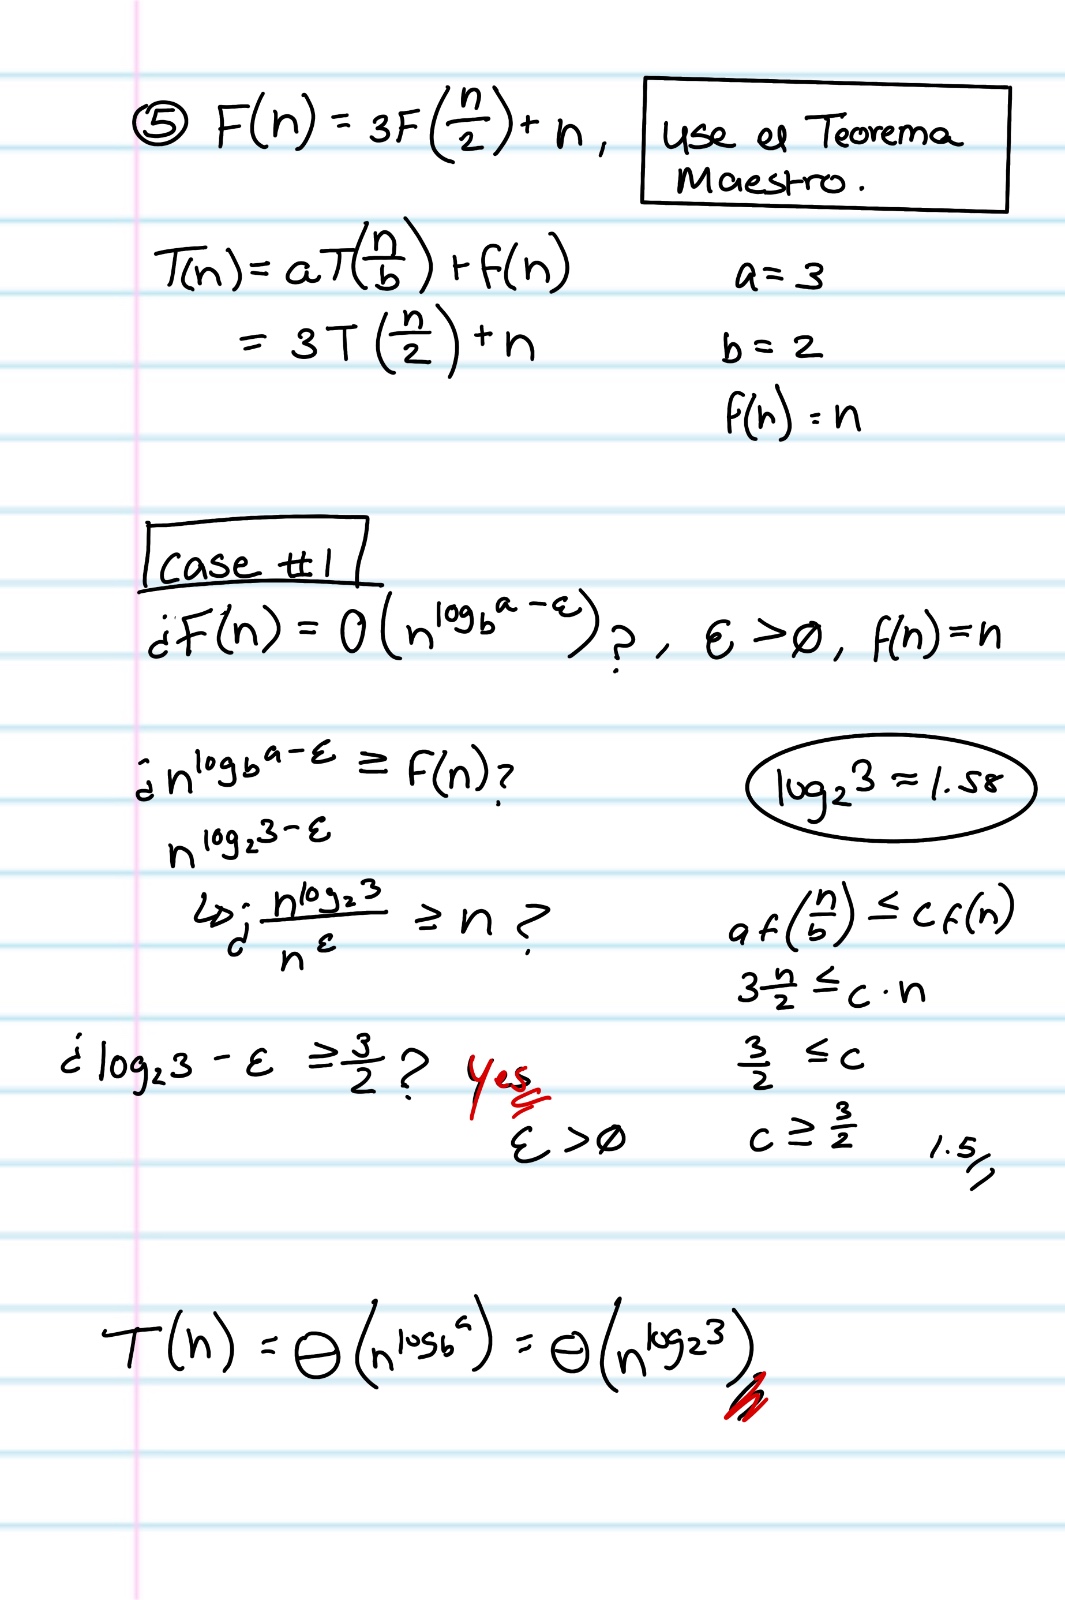 ⑤ F(n) = 3F(n/2) + n,
Use el Teorema
Maestro.
T(n) = aT(n/b) + f(n)
a = 3
= 3T(n/2) + n
b = 2
f(n) = n
case #1
¿F(n) = O(n^(log_b a - ε))?, ε > Ø, f(n) = n
¿n^(log_b a - ε) ≥ f(n)?
log₂3 ≈ 1.58
n^(log₂3 - ε)
↳¿ n^(log₂3) / n^ε ≥ n ?
af(n/b) ≤ cf(n)
3 n/2 ≤ c · n
¿log₂3 - ε ≥ 3/2 ? yes
3/2 ≤ c
ε > Ø
c ≥ 3/2 1.5
T(n) = Θ(n^(log_b a)) = Θ(n^(log₂3))